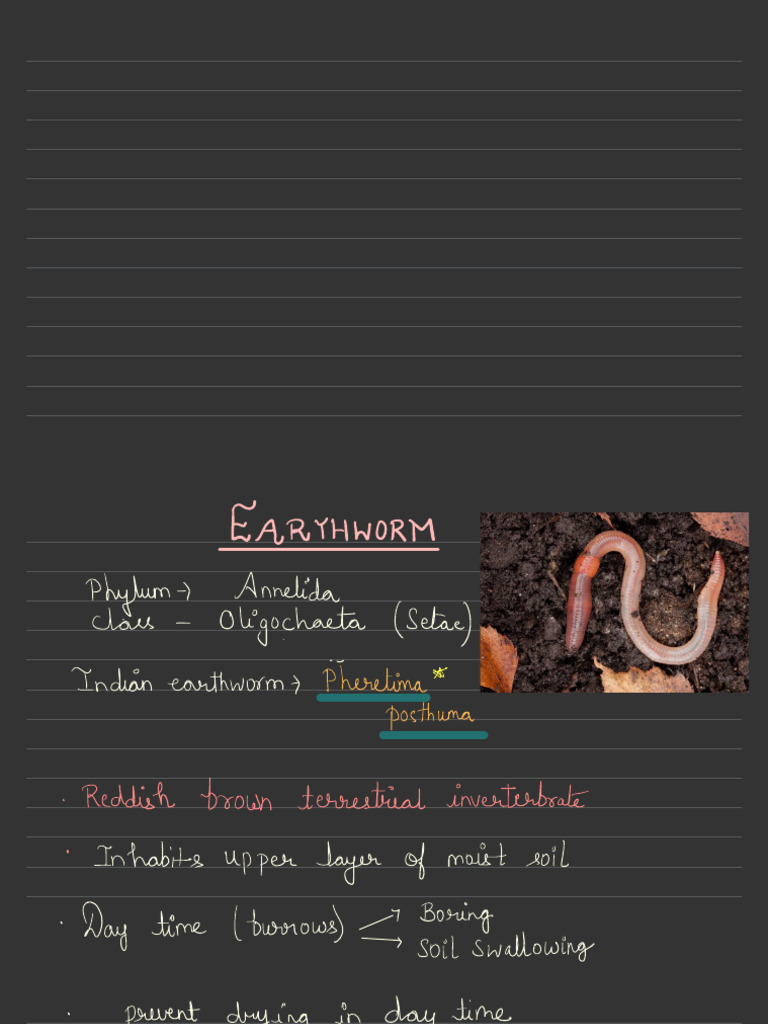 EARTHWORM
Phylum → Annelida
class – Oligochaeta (Setae)
Indian earthworm → Pheretima *
posthuma
· Reddish brown terrestrial inverterbrate
· Inhabits upper layer of moist soil
· Day time (burrows) → Boring
→ Soil swallowing
· prevent drying in day time